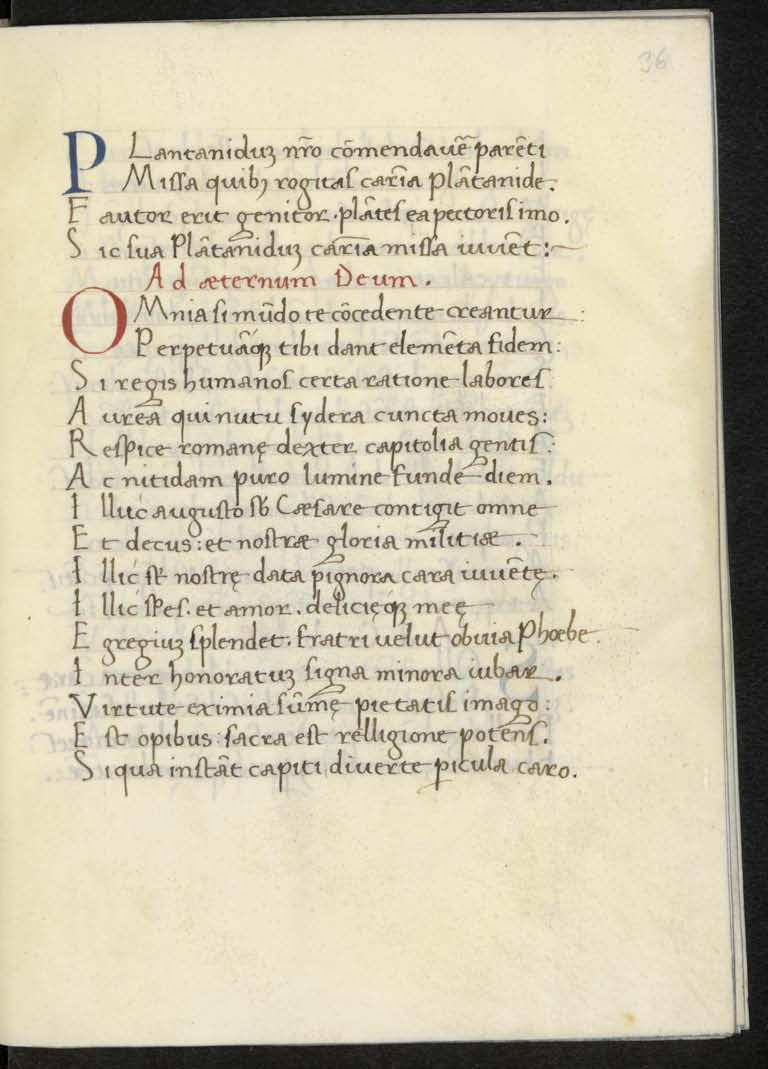 36
PLantaniduʒ nr̄o cōmendauē parēti
Missa quibꝫ rogitas carm̄a plātanide.
Fautor erit genitor. plātes ea pectoris imo.
Sic sua Plātaniduʒ carm̄a missa iuuēt:~
Ad æternum Deum.
OMnia si mūdo te cōcedente creantur:
Perpetuāqꝫ tibi dant elemēta fidem:
Si regis humanos certa ratione labores:
Aurea qui nutu sydera cuncta moues:
Respice romanę dexter capitolia gentis:
Ac nitidam puro lumine funde diem.
Illuc augusto sƀ Cæsare contigit omne
Et decus: et nostræ gloria militiæ.
Illic st̄ nostrę data pignora cara iuuētę.
Illic spes. et amor. delicięqꝫ meę
Egregiuʒ splendet. fratri uelut obuia Phoebe.
Inter honoratuʒ signa minora iubar.
Virtute eximia sūmę pietatis imago:
Est opibus: sacra est relligione potens.
Siqua instāt capiti diuerte ꝑicula caro.